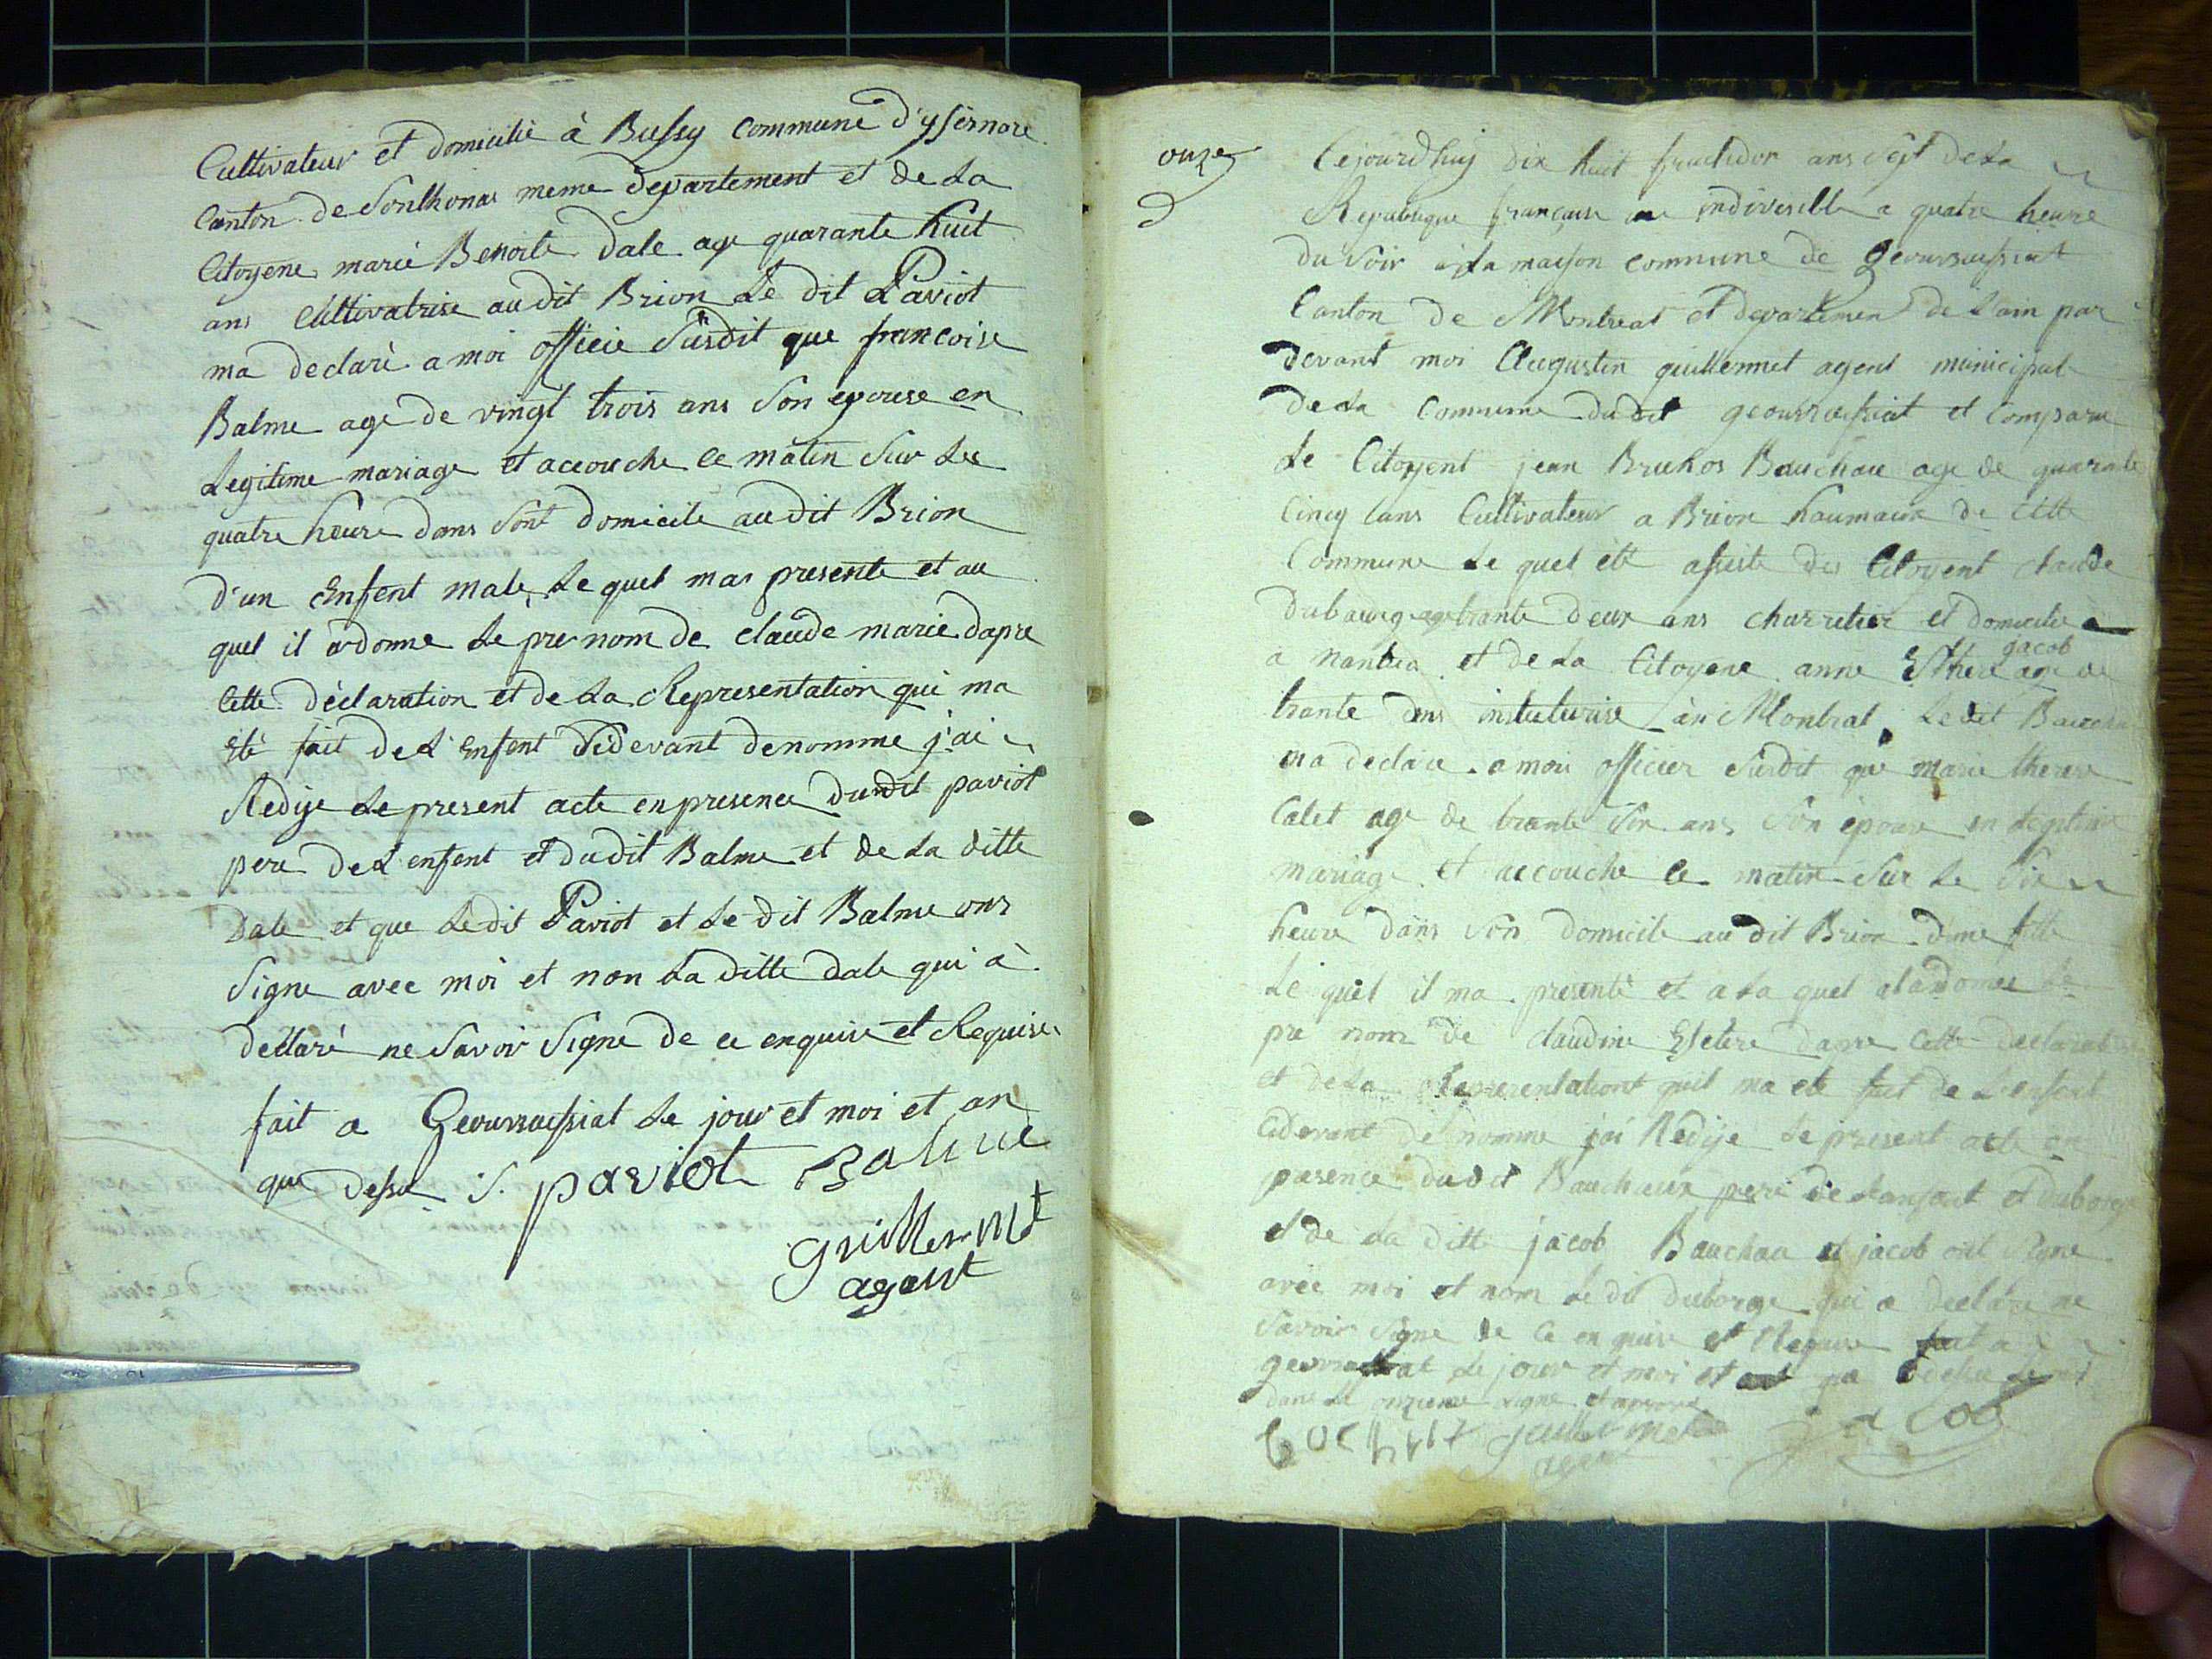 Cultivateur et domicilié à Bussy commune d'ysernore
Canton de Sonthonax meme departement et de La
Citoyene marie Benoite Dale age quarante huit
ans Cultivatrise au dit Brion Le dit Paviot
ma declaré a moi officie Susdit que francoise
Balme age de vingt trois ans Son epouse en
Legitime mariage et accouche ce matin Sur Les
quatre heure dans Sont domicile au dit Brion
d'un Enfent male, Le quel mas presente et au
quel il a donne Le prenom de claude marie dapre
Cette déclaration et de La Representation qui ma
Eté fait de L'Enfent Cidevant denomme j'ai
Redige Le present acte en presence dudit paviot
pere de L'enfent et dudit Balme et de La ditte
Dale et que Ledit Paviot et Le dit Balme ons
Signe avec moi et non La ditte dale qui à
déclaré ne Savoir Signé de ce enquise et Requise
fait a Geovreissiat Le jour et moi et an
que dessu S. paviot Balme
guillermet
agent
onze
Cejourdhuy dix huit fructidor ans Sept de La
Republique française une indivisible a quatre heure
du Soir a La maison commune de geovreissiat
Canton de Montreal et departement de Lain par
devant moi Augustin guillermet agent municipal
de La Commune dudit geovreissiat et Comparu
Le Citoyent jean Bauchau age de quarante
Cinq ans Cultivateur a Brion haumaux de Cette
Commune Le quel été assiste des Citoyent claude
Dubourg age trante deux ans charretier et domicilie
jacob
a nantua et de La Citoyene anne Esthere age de
trante ans institutrise à Montreal Ledit Bauchau
ma declare a moi officier Susdit que marie therese
Calet age de trante Six ans Son épouse en Legitime
mariage et accouche Ce matin Sur Le Six
heure dans Son domicile au dit Brion d'une fille
Le quel il ma presenté et a La quel il a donne Le
pre nom de claudine Estere dapre Cette declaration
et de La Representationt quil ma ete fait de L'enfent
Cidevant denomme jai Redige Le present acte en
presence dudit Bauchau pere de Lanfant et duborge
et de La ditte jacob Bauchau et jacob ont Signe
avec moi et nom Le dit duborge qui a declare ne
Savoir Signe de Ce en quise et Requise fait a
Le jour et moi et an que dessu
dans La onzieme Ligne
guillermet jacob
agent